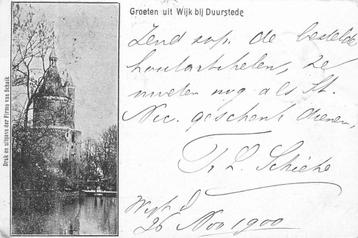 Groeten uit Wijk bij Duurstede
Druk en uitgave der Firma van Schaik
Zend s.v.p. de bestelde
houtartikelen, ze
moeten nog als St.
Nic. geschenk dienen,
Th. L. Schieke
26 Nov 1900